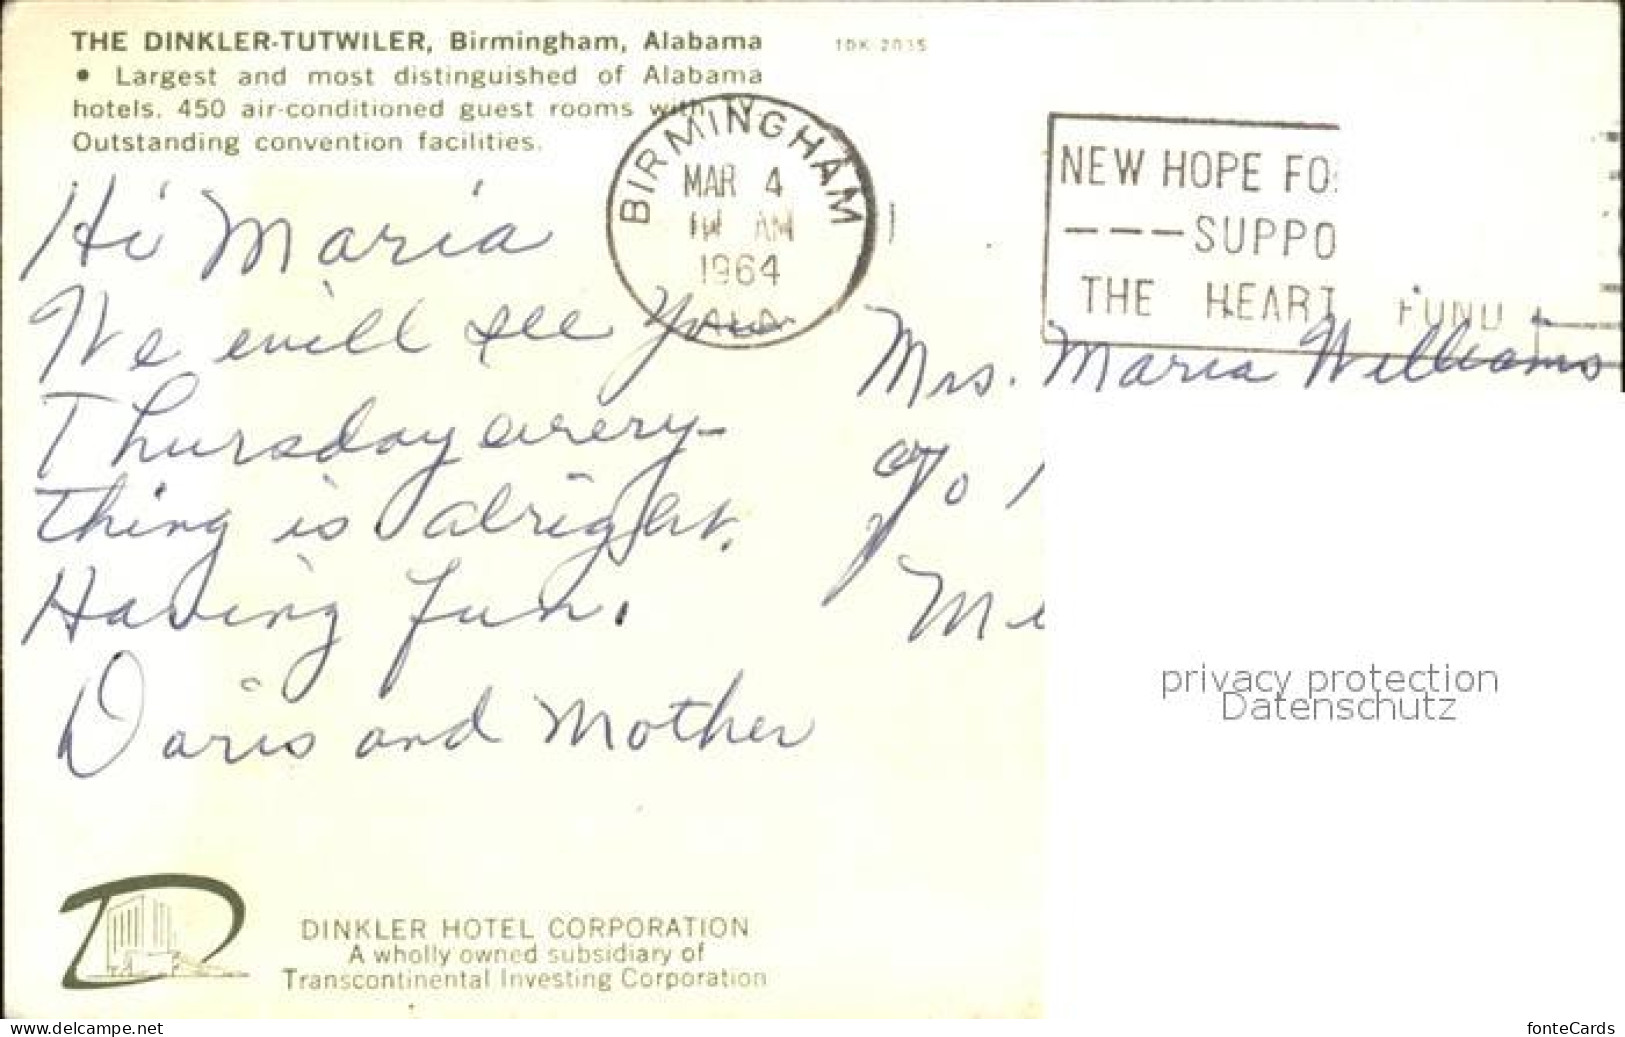 THE DINKLER-TUTWILER, Birmingham, Alabama
• Largest and most distinguished of Alabama
hotels. 450 air-conditioned guest rooms with TV.
Outstanding convention facilities.
BIRMINGHAM
MAR 4
AM
1964
ALA.
NEW HOPE FO
---SUPPO
THE HEART FUND
Hi Maria
We will see you
Thursday every-
thing is alright.
Having fun.
Doris and Mother
Mrs. Maria Williams
DINKLER HOTEL CORPORATION
A wholly owned subsidiary of
Transcontinental Investing Corporation
privacy protection
Datenschutz
www.delcampe.net
fonteCards